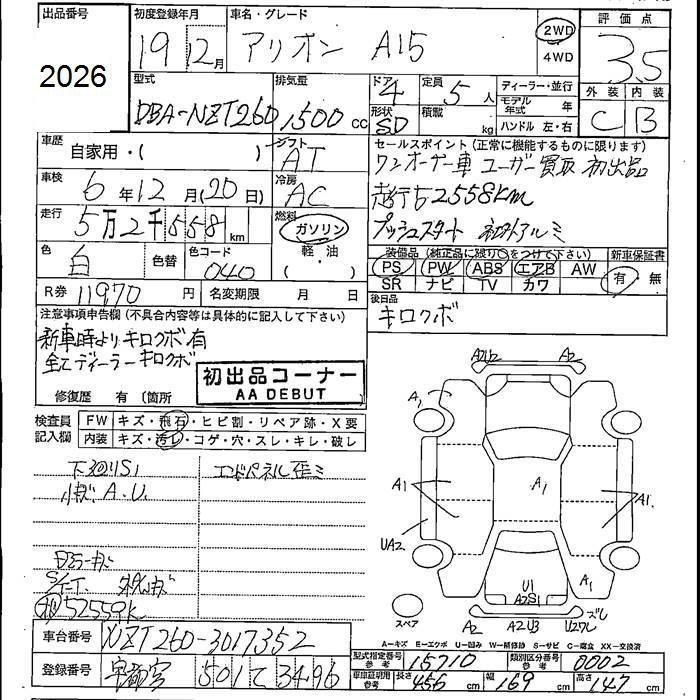 出品番号 初度登録年月 車名・グレード 2WD 4WD 評価点
2026 19 12月 アリオン A15 3.5
型式 排気量 ドア 定員 ディーラー・並行 外装 内装
DBA-NZT260 1500 cc 4 5人 モデル年式 年 C B
形状 積載 ハンドル 左・右
SD kg
車歴 自家用・( ) シフト AT
セールスポイント(正常に機能するものに限ります)
ワンオーナー車 ユーザー買取 初出品
走行52558km
プッシュスタート 社外アルミ
車検 6年12月(20日) 冷房 AC
走行 5万2千558km 燃料 ガソリン
軽・油
色 白 色替 色コード 040
装備品(純正品に限り○をつけて下さい) 新車保証書
PS PW ABS エアB AW 有・無
SR ナビ TV カワ
R券 11970円 名変期限 月 日
後日品
キロクボ
注意事項申告欄(不具合内容等は具体的に記入して下さい)
新車時よりキロクボ有
全てディーラーキロクボ
初出品コーナー
AA DEBUT
修復歴 有(箇所
検査員記入欄 FW キズ・飛石・ヒビ割・リペア跡・X要
内装 キズ・汚レ・コゲ・穴・スレ・キレ・破レ
下回りS1 エンドパネル歪ミ
小キズ A.U.
52559K
A2U2 A2
A1
A1 A1 A1
UA2
A1
U1
A2S1
スペア A2 A2U3 U2ワレ ズレ
A-キズ E-エクボ U-凹み W-補修跡 S-サビ C-腐食 XX-交換済
車台番号 NZT260-3017352
登録番号 宇都宮 501 て 3496
型式指定番号 参考 15710 類別区分番号 参考 0002
車庫証明用参考 長さ 456cm 幅 169cm 高さ 147cm